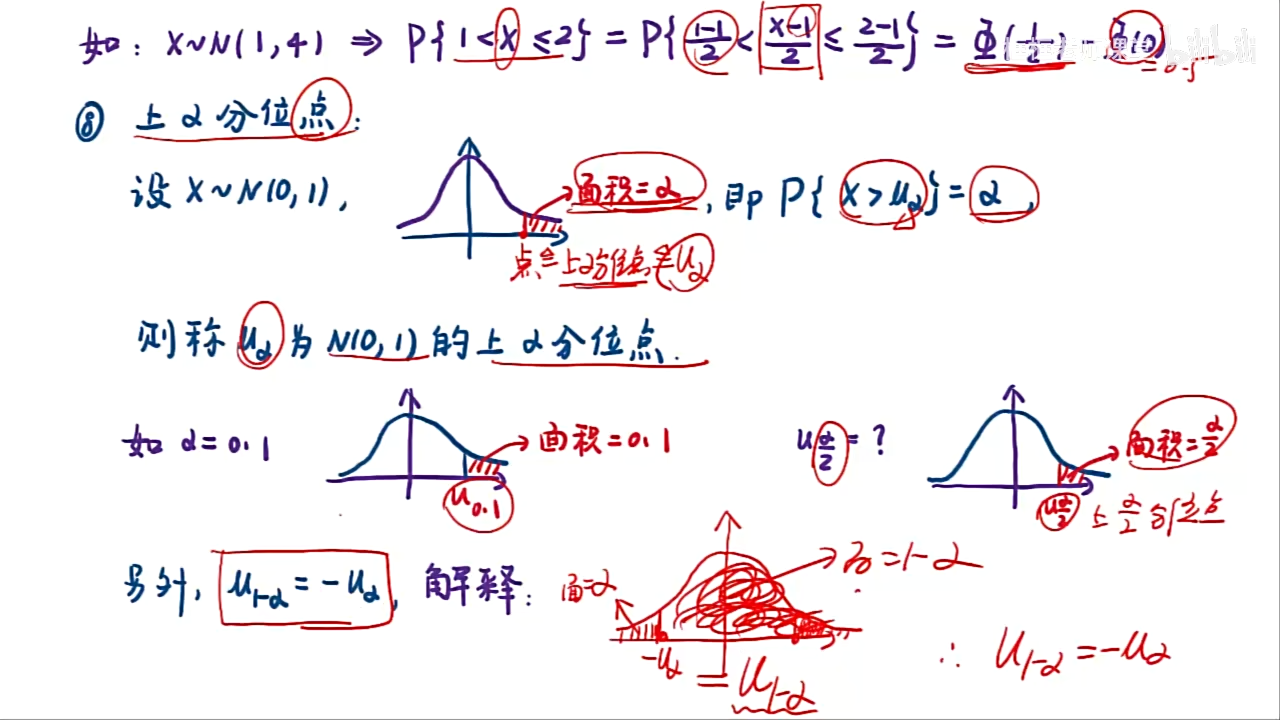 如: X~N(1,4) ⇒ P{1<X≤2} = P{(1-1)/2 < (X-1)/2 ≤ (2-1)/2} = Φ(1/2) - Φ(0)
= 0.5
⑧ 上α分位点:
设 X~N(0,1), 面积=α, 即 P{X>u_α}=α,
点≙上α分位点≙u_α
则称 u_α 为 N(0,1) 的上α分位点.
如 α=0.1 面积=0.1 u_{α/2}=? 面积=α/2
u_{0.1} u_{α/2} 上α/2分位点
另外, u_{1-α}=-u_α, 解释: 面=α =1-α
-u_α = u_{1-α} ∴ u_{1-α}=-u_α